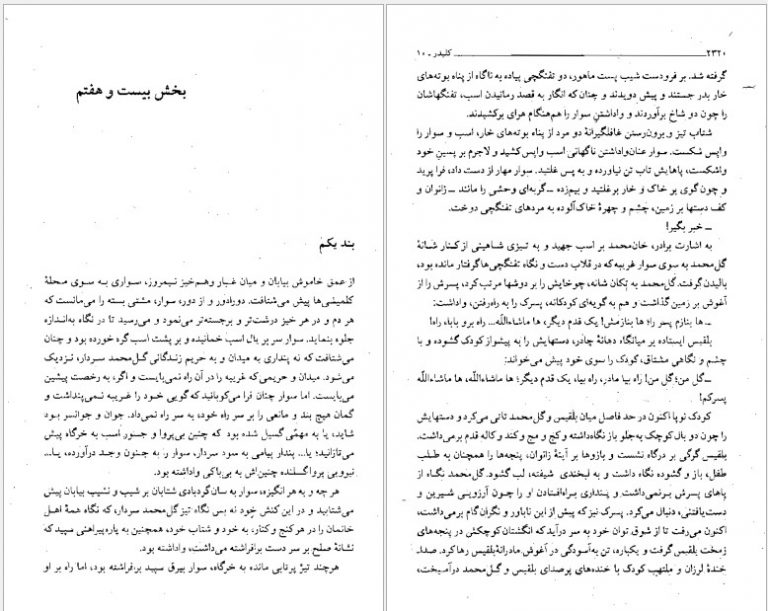 بخش بیست و هفتم
بند یکم
از عمق خاموش بیابان و میان غبار وهم‌خیز نیمروز، سواری به سوی محلهٔ
کلمیشی‌ها پیش می‌شتافت. دورادور و از دور، سوار، مشتی بسته را می‌مانست که
هر دم و در هر خیز درشت‌تر و برجسته‌تر می‌نمود و می‌رسید تا در نگاه به‌اندازه
جلوه بنماید. سوار سر بر یال اسب خمانیده و بر پشت اسب گره خورده بود و چنان
می‌شتافت که نه پنداری به میدان و به حریم زندگانی گل‌محمد سردار، نزدیک
می‌شود. میدان و حریمی که غریبه را در آن راه نمی‌بایست و اگر، به رخصت پیشین
می‌بایست. اما سوار چنان فرا می‌کوبانید که گویی خود را غریبه نمی‌پنداشت و
گمان هیچ بند و مانعی را بر سر راه خود، به سر راه نمی‌داد. جوان و جوانسر بود
شاید، یا به مهمّی گسیل شده بود که چنین بی‌پروا و جسور اسب به خرگاه پیش
می‌تازانید؛ یا... پندار پیامی به سود سردار، سوار را به جنون وجد درآورده، یا...
نیرویی پرواگسلنده چنین‌اش به بی‌باکی واداشته بود.
هر چه و به هر انگیزه، سوار به سان گردبادی شتابان بر شیب و نشیب بیابان پیش
می‌شتابید و در این کنش خود نه بس نگاه تیز گل‌محمد سردار، که نگاه همهٔ اهل
خانمان را در هر کنج و کنار، به خود و شتاب خود، همچنین به پاره پیراهنی سپید که
نشانهٔ صلح بر سر دست برافراشته می‌داشت، واداشته بود.
هرچند تیژ پرتابی مانده به خرگاه، سوار بیرق سپید برفراشته بود، اما راه بر او
۲۳۲۰ کلیدر ـ ۱۰
گرفته شد. بر فرودست شیب پست ماهور، دو تفنگچی پیاده به ناگاه از پناه بوته‌های
خار بدر جستند و پیش دویدند و چنان که انگار به قصد رمانیدن اسب، تفنگهاشان
را چون دو شاخ برآوردند و واداشتنِ سوار را هم‌هنگام هرای برکشیدند.
شتاب تیز و برون‌رستن غافلگیرانهٔ دو مرد از پناه بوته‌های خار، اسب و سوار را
واپس شکست. سوار عنان‌واداشتن ناگهانی اسب واپس کشید و لاجرم بر پسینِ خود
واشکست، پاهایش تاب تن نیاورده و به پس غلتید. سوار مهار از دست داد، فرا پرید
و چون گوی بر خاک و خار برغلتید و بیم‌زده ــ گربه‌ای وحشی را مانند ــ زانوان و
کف دستها بر زمین، چشم و چهرهٔ خاک‌آلوده به مردهای تفنگچی دوخت.
ــ خبر بگیر!
به اشارت برادر، خان‌محمد بر اسب جهید و به تیزی شاهینی از کنار شانهٔ
گل‌محمد به سوی سوار غریبه که در قلاب دست و نگاه تفنگچی‌ها گرفتار مانده بود،
بالیدن گرفت. گل‌محمد به تکان شانه، چوخایش را بر دوشها مرتب کرد، پسرش را از
آغوش بر زمین گذاشت و هم به گویه‌ای کودکانه، پسرک را به راه‌رفتن، واداشت:
ــ ها بنازم پسر را؛ ها بنازمش! یک قدم دیگر، ها ماشاءاللّه... راه برو بابا، راه!
بلقیس ایستاده بر میانگاه دهانهٔ چادر، دستهایش را به پیشواز کودک گشوده و با
چشم و نگاهی مشتاق، کودک را سوی خود پیش می‌خواند:
ــ گل من؛ گل من! راه بیا مادر، راه بیا، یک قدم دیگر؛ ها ماشاءاللّه، ها ماشاءاللّه
پسرکم!
کودک نوپا اکنون در حد فاصل میان بلقیس و گل‌محمد تاتی می‌کرد و دستهایش
را چون دو بال کوچک به‌جلو باز نگاه‌داشته و کج و مج و کند و کاله قدم برمی‌داشت.
بلقیس گرگی بر درگاه نشست و بازوها بر آینهٔ زانوان، پنجه‌ها را همچنان به طلب
طفل، باز و گشوده نگاه داشت و به لبخندی شیفته، لب گشود. گل‌محمد نگاه از
پاهای پسرش برنمی‌داشت و پنداری براه‌افتادن او را چون آرزویی شیرین و
دست‌یافتنی، دنبال می‌کرد. پسرک نیز که پیش از این ناباور و نگران گام برمی‌داشت،
اکنون می‌رفت تا از شوق توان خود به سر درآید که انگشتان کوچکش در پنجه‌های
زمخت بلقیس گرفت و یکباره، تن به‌آسودگی در آغوش مادرانهٔ بلقیس رها کرد. صدای
خندهٔ لرزان و ملتهب کودک با خنده‌های پرصدای بلقیس و گل‌محمد درآمیخت،